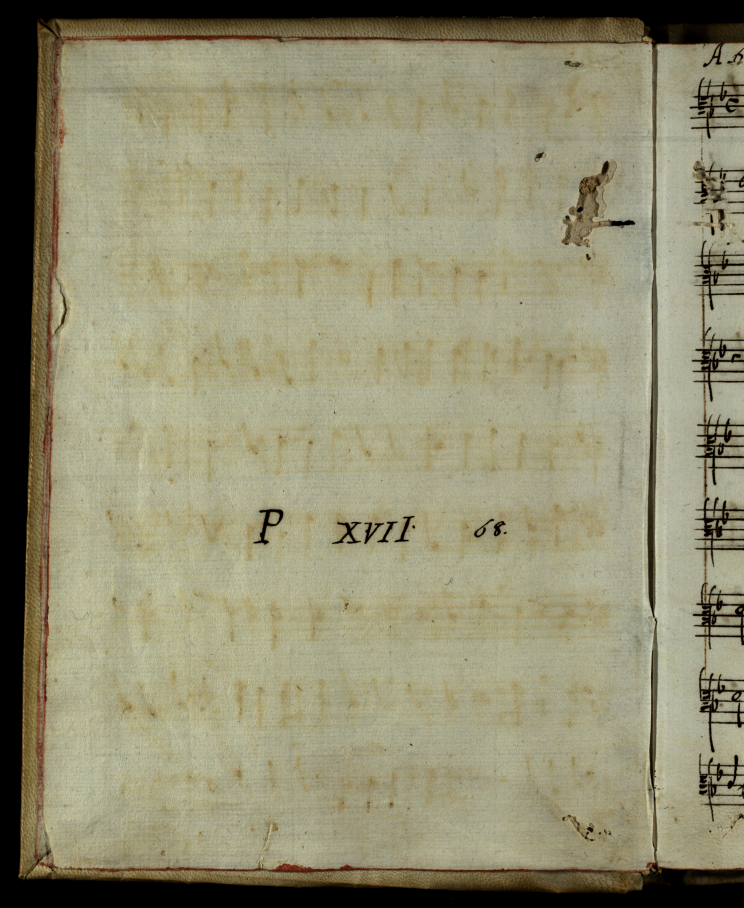 P XVII. 68.